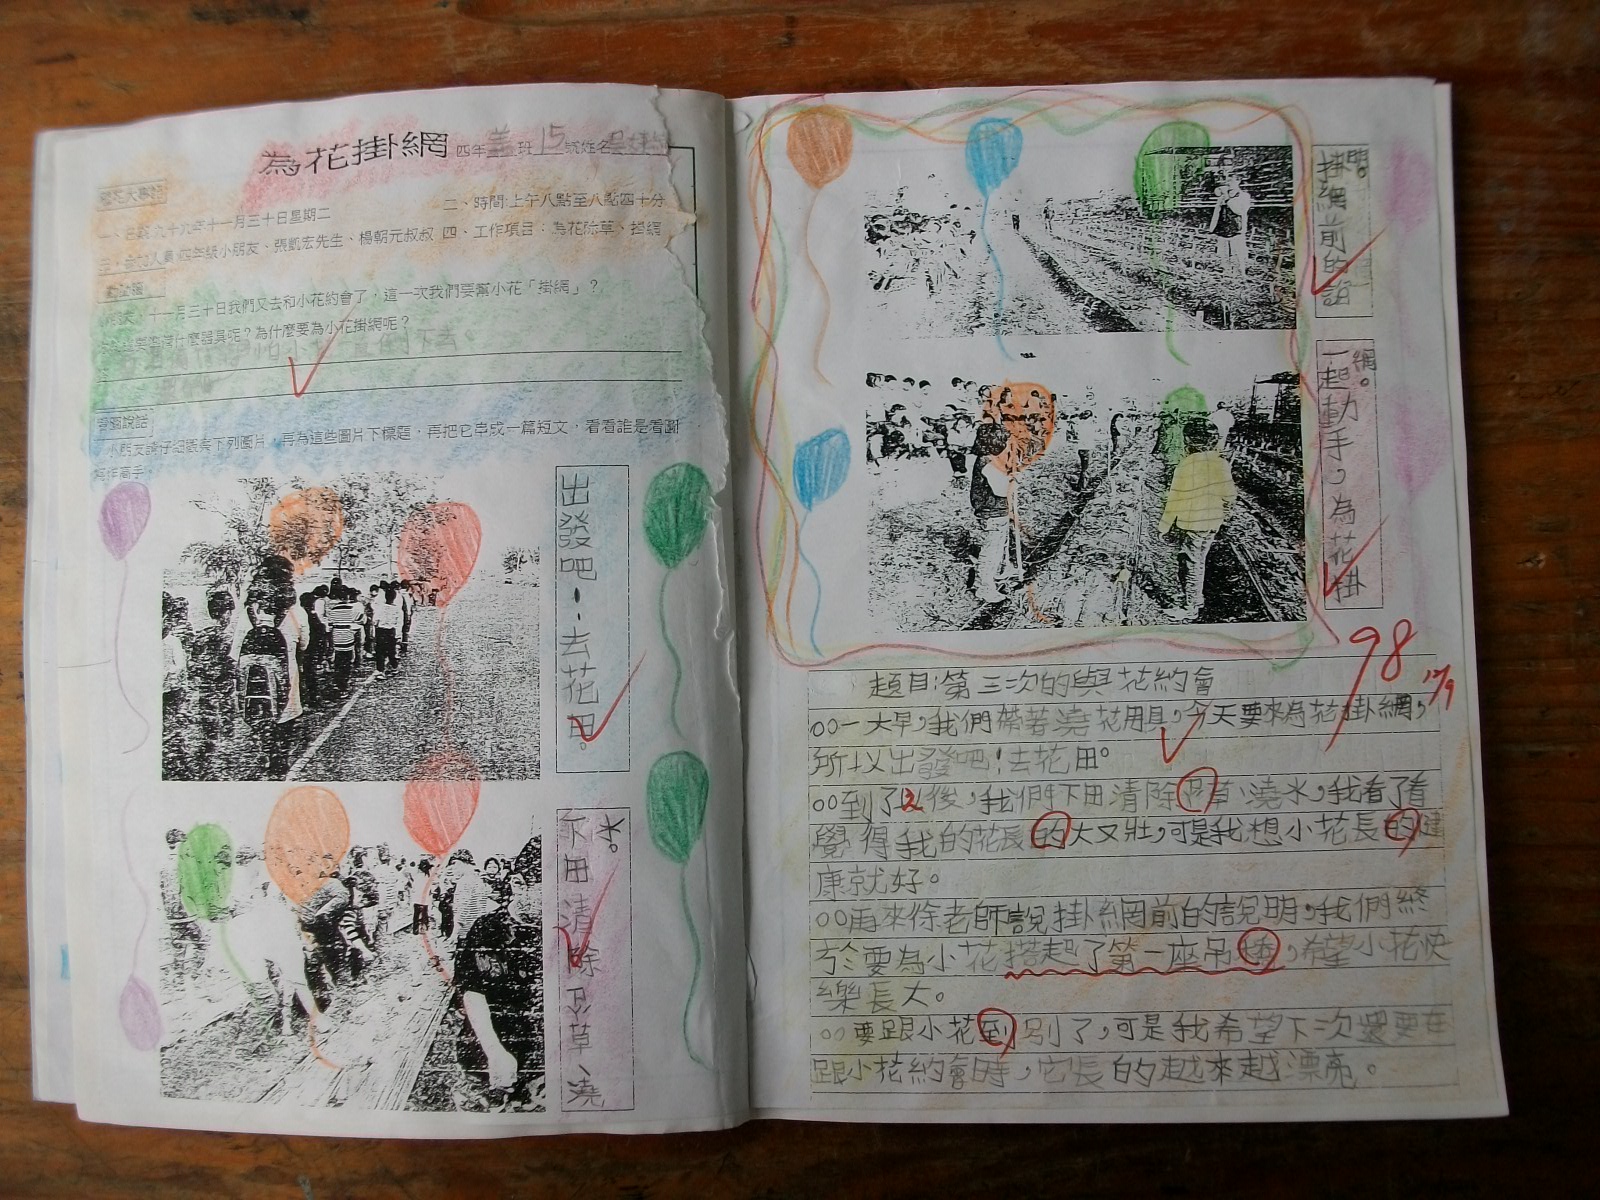 為花掛網 四年 班15號姓名
一、日期 九十九年十一月三十日星期二
二、時間:上午八點至八點四十分
四年級小朋友、張凱宏先生、楊朝元叔叔
四、工作項目:為花除草、掛網
十一月三十日我們又去和小花約會了,這一次我們要幫小花「掛網」?
什麼器具呢?為什麼要為小花掛網呢?
倒下去。
看圖說話
小朋友請仔細觀察下列圖片,再為這些圖片下標題,再把它串成一篇短文,看看誰是看圖
寫作高手
出發吧!去花田。
下田清除忍草、澆
水。
掛網前的說
明。
一起動手,為花掛
網。
98
12/9
題目:第三次的與花約會
一大早,我們帶著澆花用具,今天要來為花掛網,
所以出發吧!去花田。
到了以後,我們下田清除忍草、澆水,我看了看
覺得我的花長的大又壯,可是我想小花長的健
康就好。
再來徐老師說掛網前的說明,我們終
於要為小花搭起了第一座吊,希望小花快
樂長大。
要跟小花到別了,可是我希望下次還要在
跟小花約會時,它長的越來越漂亮。